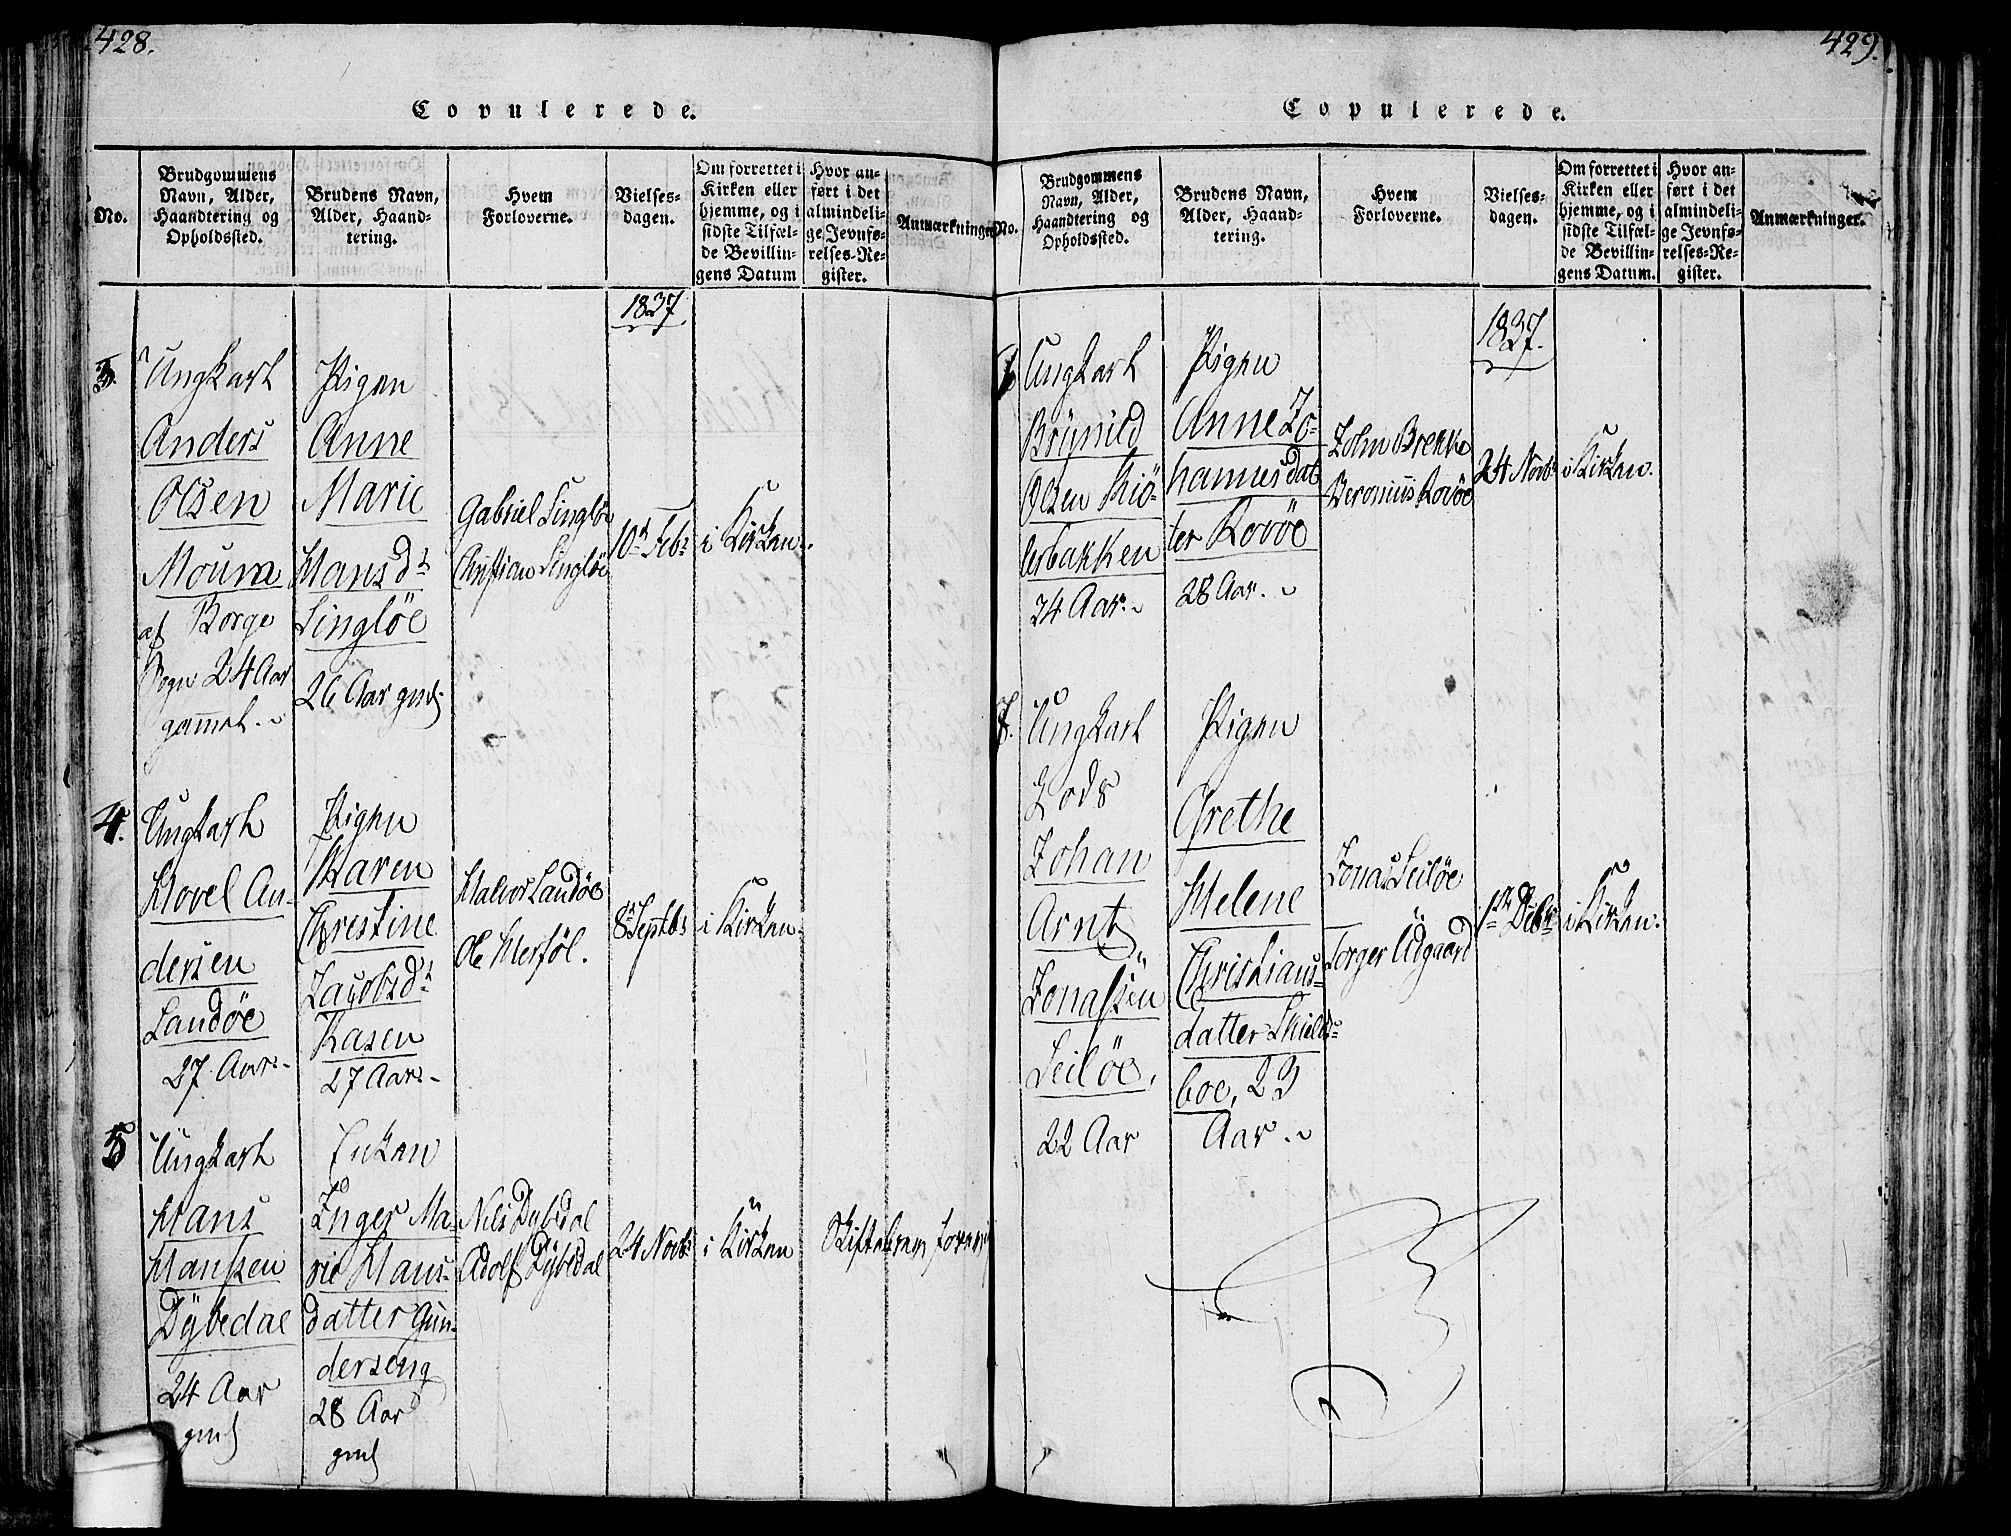 428.
Copulerede.
No.
Brudgommens Navn, Alder, Haandtering og Opholdssted.
Brudens Navn, Alder, Haandtering.
Hvem Forloverne.
Vielsesdagen.
Om forrettet i Kirken eller hjemme, og i sidste Tilfælde Bevillingens Datum
Hvor anført i det almindelige Jevnførelses-Register.
Anmærkninger
1837
3.
Ungkarl
Anders
Olsen
Moum
af Borge
Sogn 24 Aar
gammel.
Pigen
Anne
Marie
Hansdr
Singløe
26 Aar gml
Gabriel Singløe
Christian Singløe
10de Febr
i Kirken.
4.
Ungkarl
Hovel An-
dersen
Sandöe
27 Aar
Pigen
Karen
Christine
Jacobsdr
Kasen
27 Aar
Halvor Sandöe
Ole Meföl.
8de Septbr
i Kirken.
5
Ungkarl
Hans
Hanssen
Dÿbedal
24 Aar
gml
Enken
Inger Ma-
rie Hans-
datter Gun-
derseng
28 Aar
gml
Nils Dybedal
Adolf Dÿbedal
24 Novbr
i Kirken
Skiftebrev forevist
429.
Copulerede.
No.
Brudgommens Navn, Alder, Haandtering og Opholdssted.
Brudens Navn, Alder, Haandtering.
Hvem Forloverne.
Vielsesdagen.
Om forrettet i Kirken eller hjemme, og i sidste Tilfælde Bevillingens Datum.
Hvor anført i det almindelige Jevnførelses-Register.
Anmærkninger.
1837.
6
Ungkarl
Brÿnild
Olsen Kiö-
lerbakken
24 Aar.
Pigen
Anne Jo-
hannesdat
ter Rovöe
28 Aar.
John Brekke
Veronius Rovöe
24 Novbr
i Kirken.
7.
Ungkarl
Lods
Johan
Arnt
Jonassen
Seilöe,
22 Aar
Pigen
Grethe
Helene
Christians-
datter Skields-
boe, 23
Aar.
Jonas Seilöe
Torger Udgaard
1ste Debr
i Kirken.